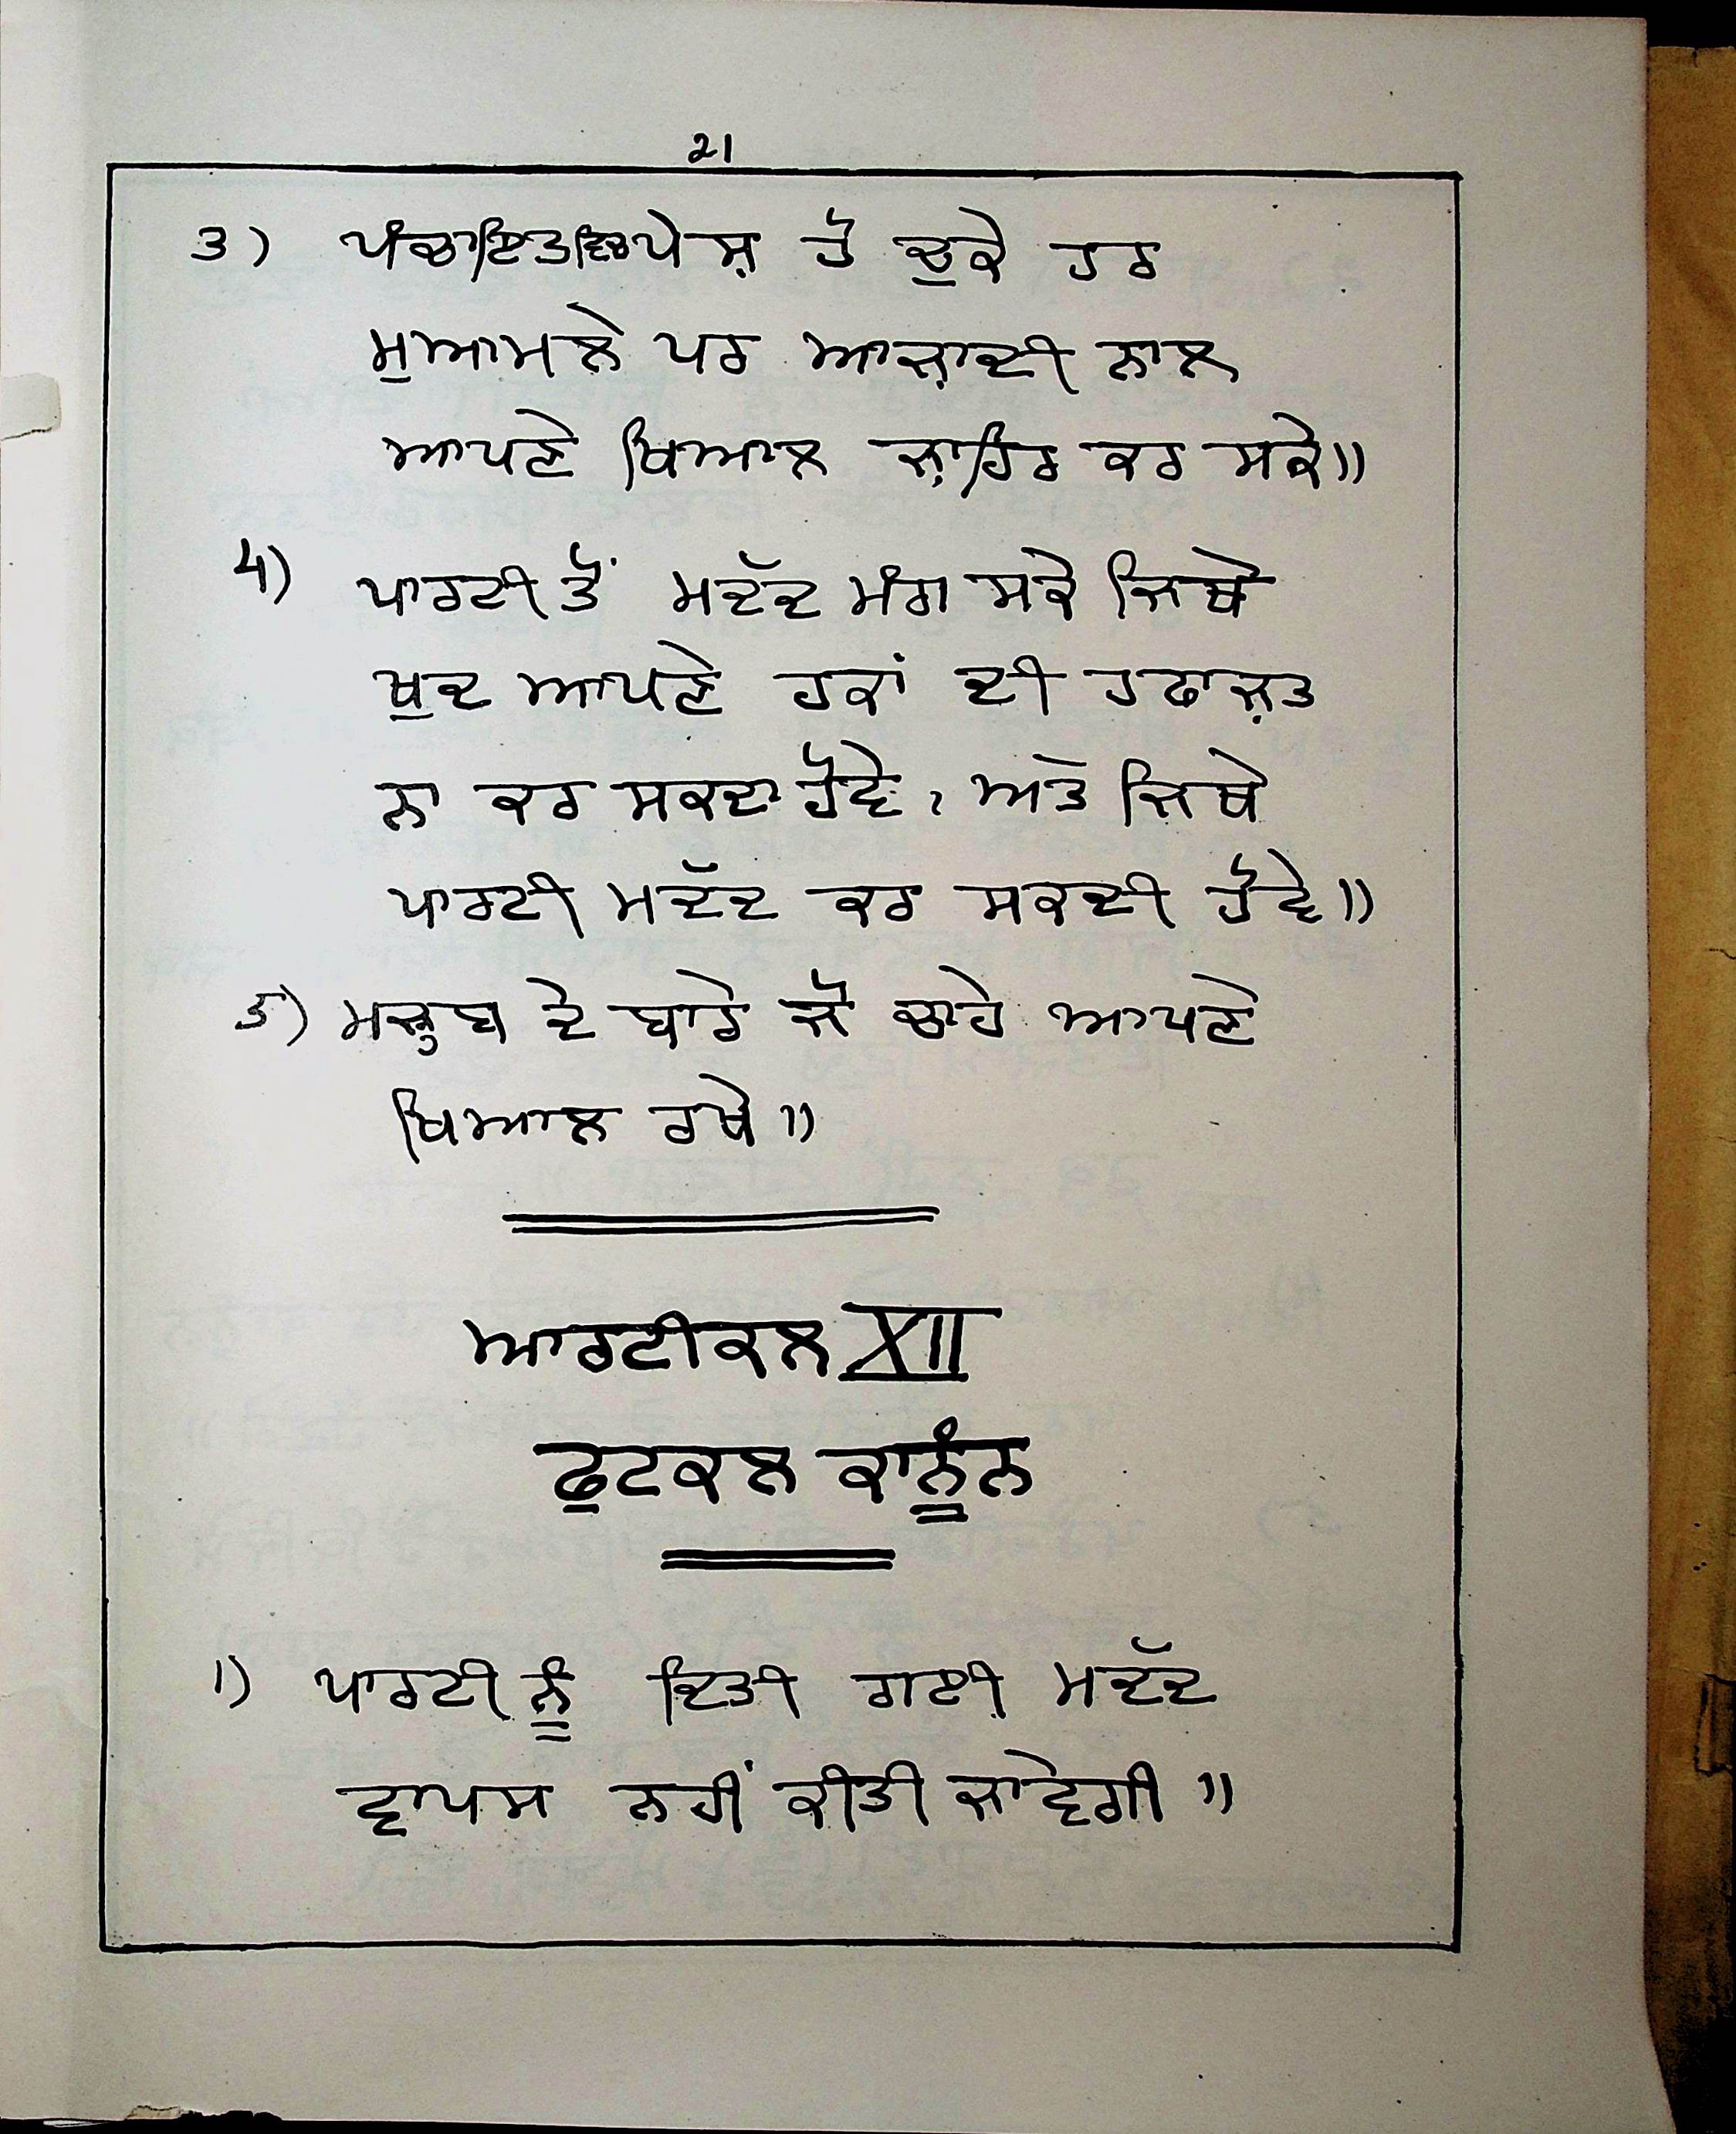 21
3) ਪੰਚਾਇਤ ਵਿਚ ਪੇਸ਼ ਹੋ ਚੁਕੇ ਹਰ
ਮੁਆਮਲੇ ਪਰ ਆਜ਼ਾਦੀ ਨਾਲ
ਆਪਣੇ ਖਿਆਲ ਜ਼ਾਹਿਰ ਕਰ ਸਕੇ॥
4) ਪਾਰਟੀ ਤੋਂ ਮਦੱਦ ਮੰਗ ਸਕੇ ਜਿਥੇ
ਖੁਦ ਆਪਣੇ ਹਕਾਂ ਦੀ ਹਫਾਜ਼ਤ
ਨਾ ਕਰ ਸਕਦਾ ਹੋਵੇ, ਅਤੇ ਜਿਥੇ
ਪਾਰਟੀ ਮਦੱਦ ਕਰ ਸਕਦੀ ਹੋਵੇ॥
5) ਮਜ਼੍ਹਬ ਦੇ ਬਾਰੇ ਜੋ ਚਾਹੇ ਆਪਣੇ
ਖਿਆਲ ਰਖੇ॥
ਆਰਟੀਕਲ XII
ਫੁਟਕਲ ਕਾਨੂੰਨ
1) ਪਾਰਟੀ ਨੂੰ ਦਿਤੀ ਗਈ ਮਦੱਦ
ਵਾਪਸ ਨਹੀਂ ਕੀਤੀ ਜਾਵੇਗੀ॥